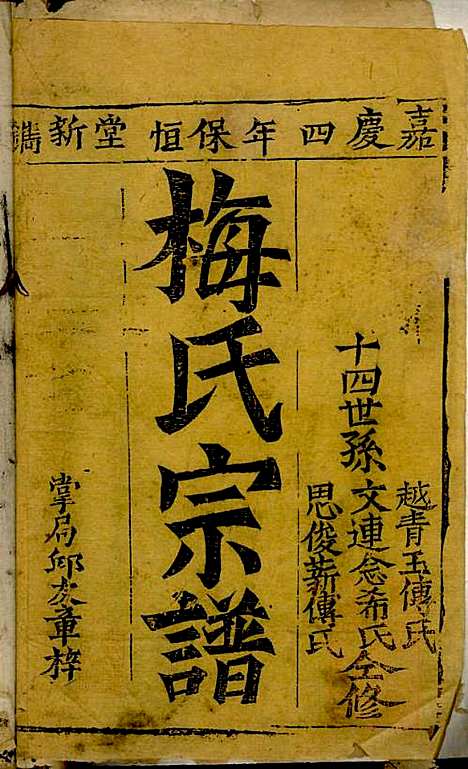 嘉慶四年保恒堂新鐫
十四世孫
越青玉傳氏
文連念希氏仝修
思俊薪傳氏
梅氏宗譜
掌局邱友章梓